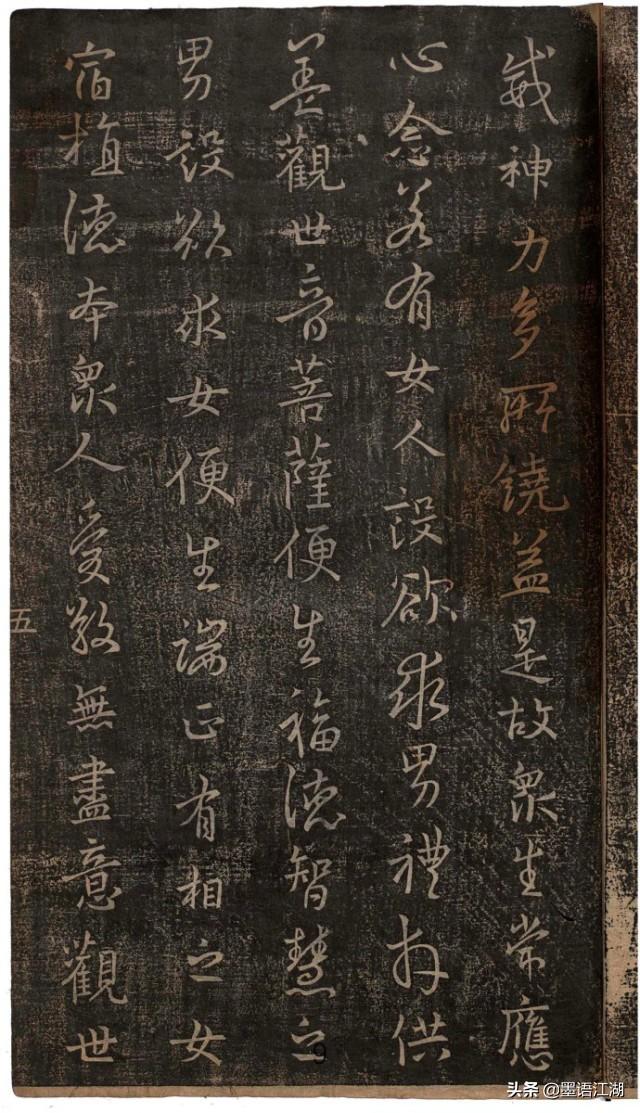 威神力多所饒益是故眾生常應
心念若有女人設欲求男禮拜供
養觀世音菩薩便生福德智慧之
男設欲求女便生端正有相之女
宿植德本眾人愛敬無盡意觀世
五
9
头条 @墨语江湖